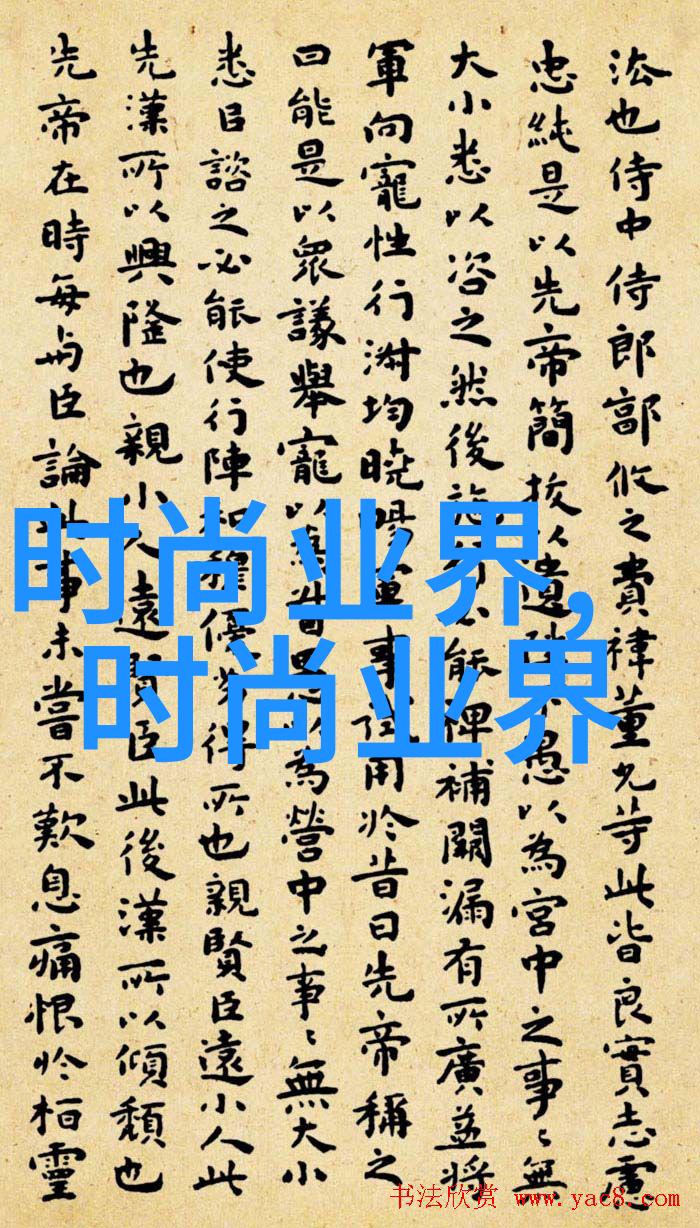 法也侍中侍郎郭攸之費禕董允等此皆良實志慮
忠純是以先帝簡拔以遺愚以為宮中之事〻無
大小悉以咨之然後施能裨補闕漏有所廣益將
軍向寵性行淑均曉暢軍事試用於昔日先帝稱之
曰能是以衆議舉寵以為督愚以為營中之事〻無大小
悉以諮之必能使行陣和穆優劣得所也親賢臣遠小人此
先漢所以興隆也親小人遠賢臣此後漢所以傾頹也
先帝在時每與臣論此事未嘗不歎息痛恨於桓靈
时尚业界,
时尚业界
书法欣赏 www.yac8.com